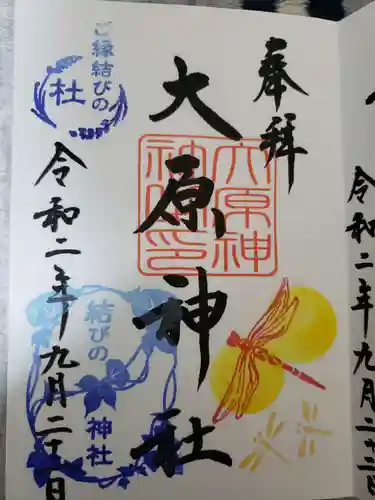 奉拝
大原神社
大原神社印
ご縁結びの
社
結びの
神社
令和二年九月二十二日
令和二年九月二十二日